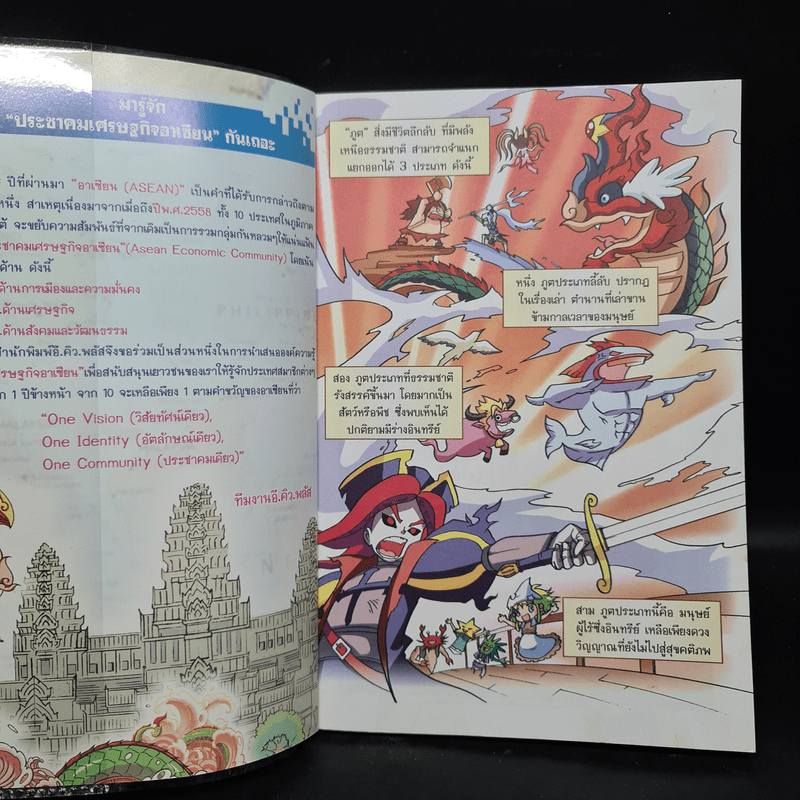 มารู้จัก
“ประชาคมเศรษฐกิจอาเซียน” กันเถอะ
ปีที่ผ่านมา “อาเซียน (ASEAN)” เป็นคำที่ได้รับการกล่าวถึงตาม
หนึ่ง สาเหตุเนื่องมาจากเมื่อถึงปีพ.ศ.2558 ทั้ง 10 ประเทศในภูมิภาค
จะขยับความสัมพันธ์ที่จากเดิมเป็นการรวมกลุ่มกันหลวมๆให้แน่นแฟ้น
ชาคมเศรษฐกิจอาเซียน”(Asean Economic Community) โดยเน้น
ด้าน ดังนี้
ด้านการเมืองและความมั่นคง
.ด้านเศรษฐกิจ
.ด้านสังคมและวัฒนธรรม
สำนักพิมพ์อี.คิว.พลัสจึงขอร่วมเป็นส่วนหนึ่งในการนำเสนอองค์ความรู้
เศรษฐกิจอาเซียน”เพื่อสนับสนุนเยาวชนของเราให้รู้จักประเทศสมาชิกต่างๆ
ก 1 ปีข้างหน้า จาก 10 จะเหลือเพียง 1 ตามคำขวัญของอาเซียนที่ว่า
“One Vision (วิสัยทัศน์เดียว),
One Identity (อัตลักษณ์เดียว),
One Community (ประชาคมเดียว)”
ทีมงานอี.คิว.พลัส
“ภูต” สิ่งมีชีวิตลึกลับ ที่มีพลัง
เหนือธรรมชาติ สามารถจำแนก
แยกออกได้ 3 ประเภท ดังนี้
หนึ่ง ภูตประเภทลี้ลับ ปรากฏ
ในเรื่องเล่า ตำนานที่เล่าขาน
ข้ามกาลเวลาของมนุษย์
สอง ภูตประเภทที่ธรรมชาติ
รังสรรค์ขึ้นมา โดยมากเป็น
สัตว์หรือพืช ซึ่งพบเห็นได้
ปกติยามมีร่างอินทรีย์
สาม ภูตประเภทนี้คือ มนุษย์
ผู้ไร้ซึ่งอินทรีย์ เหลือเพียงดวง
วิญญาณที่ยังไม่ไปสู่สุขคติภพ